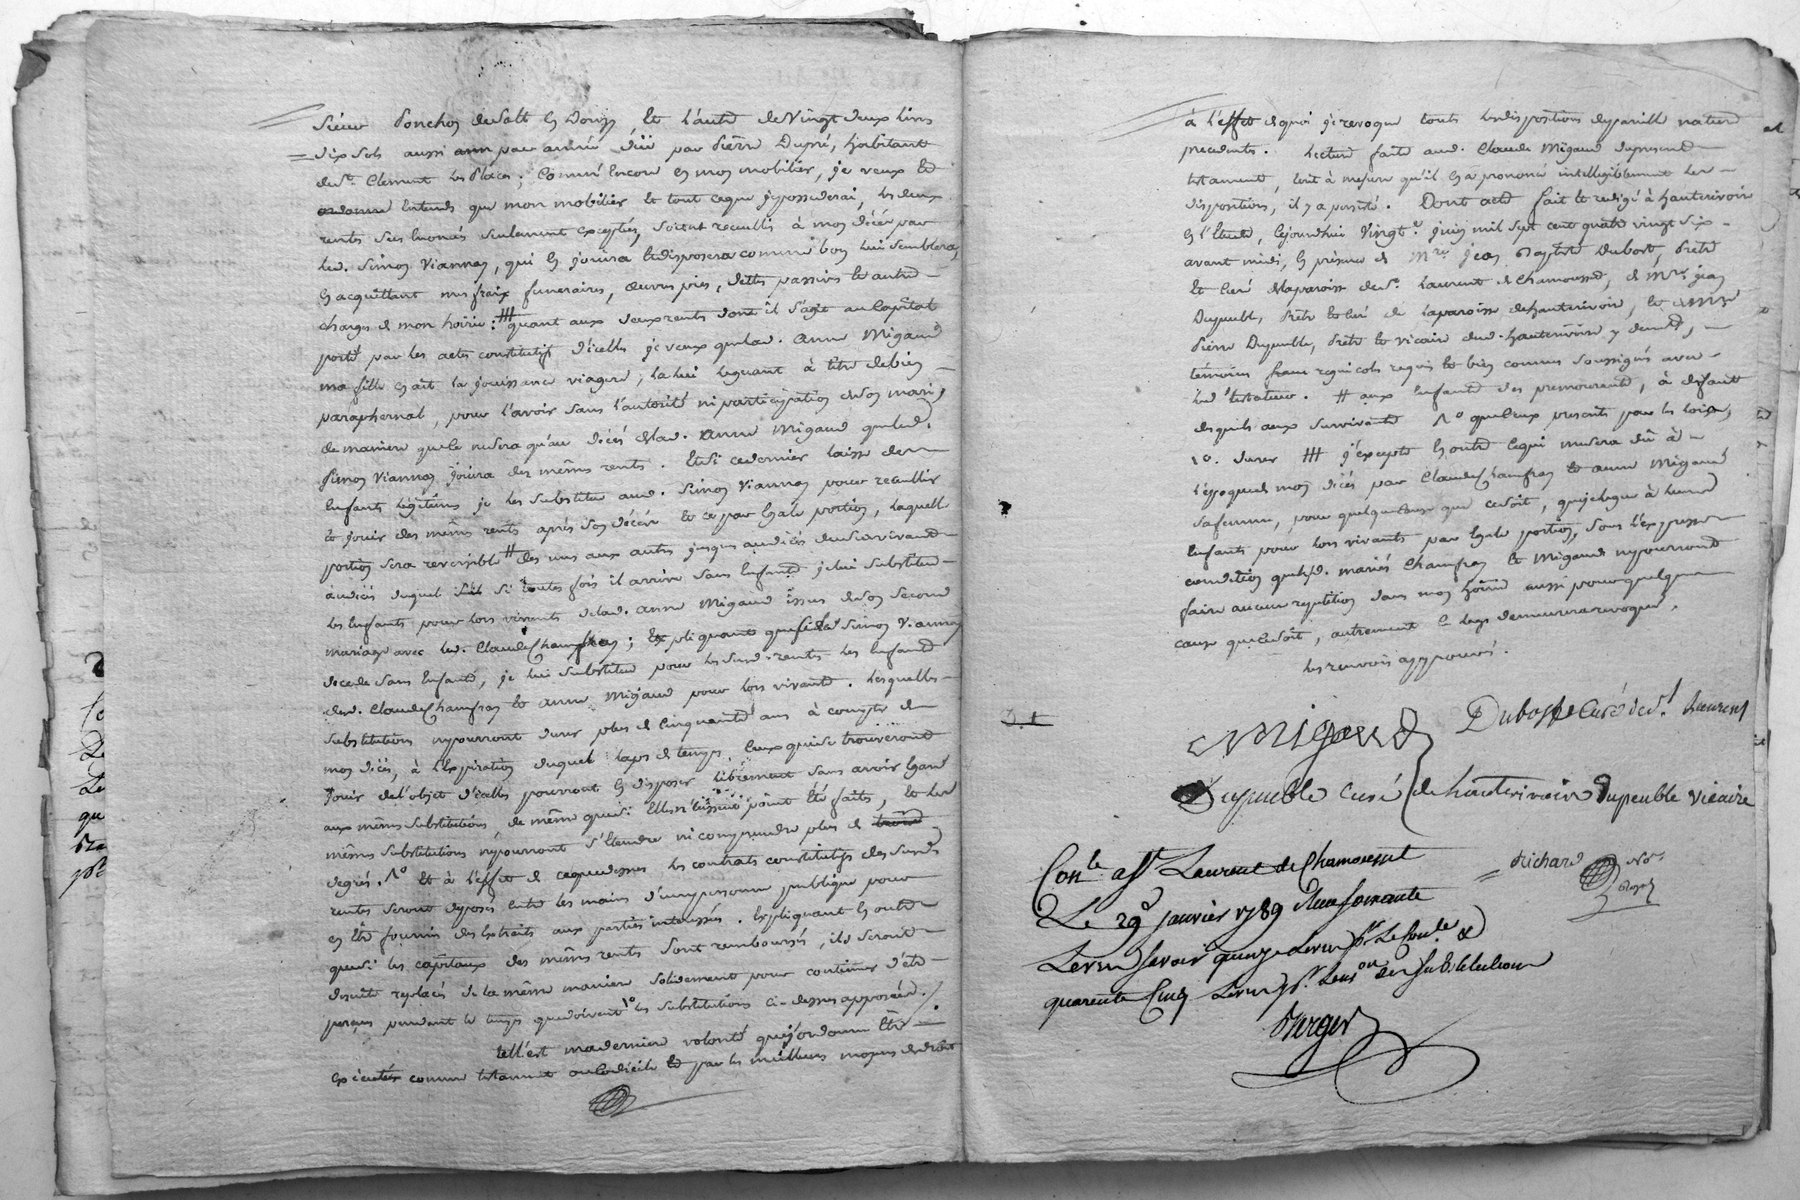 sieur Ponchon dudit & l'autre de Vingt deux livres
dix sols aussi par année dûe par Pierre Dupré, habitant
de St. Clement les Places; Comme Encore En mon mobilier, je veux Et
Entends que mon mobilier Et tout ceque je possederai, les deux
rentes sus Enoncés seulement Exceptées, soient recuellis à mon décés par
led. Simon Viannay, qui En jouira Et disposera comme bon lui semblera,
En acquittant mes fraix funeraires, œuvres pies, dettes passives Et autres
charges de mon hoirie: ### quant aux deux rentes dont il s'agit au Capital
porté par les actes constitutifs d'icelles je veux que lad. anne Migaud
ma fille En ait la jouissance viagere; la lui leguant à titre de bien
paraphernal, pour l'avoir sans l'autorité ni participation de son mari,
de maniere que ce ne sera qu'au décés de lad. anne Migaud que led.
Simon Viannay jouira des mêmes rentes. Et si ce dernier laisse des
Enfants légitimes je les substitue aud. Simon Viannay pour recuellir
Et jouir des mêmes rentes aprés son décés Et ce par Egale portion, laquelle
portion sera reversible # des uns aux autres jusques au décés du survivant
au décés duquel si toutes fois il arrive sans Enfants je lui substitue
les Enfants pour lors vivants de lad. anne Migaud issus de son second
mariage avec led. Claude Chamfray; Expliquant que si led. Simon Viannay
decede sans Enfants, je lui substitue pour les susd. rentes les Enfants
dud. Claude Chamfray Et anne Migaud pour lors vivants. Lesquelles
substitutions ne pourront durer plus de Cinquante ans à compter de
mon décés, à l'Expiration duquel laps de temps, Ceux qui se trouveront
jouir de l'objet d'icelles pourront En disposer librement sans avoir Egard
aux mêmes substitutions, de même que si Elles n'eussent point Eté faites, Et les
mêmes substitutions ne pourront s'Etendre ni comprendre plus de
degrés. 1o Et à l'effet de ceque dessus les contrats constitutifs des susd.
rentes seront déposés Entre les mains d'une personne publique pour
En Etre fourni des Extraits aux parties interessées. Expliquant En outre
que si les capitaux des mêmes rentes sont remboursés, ils seront
Ensuite replacés de la même maniere solidement pour continuer d'étre
perçus pendant le temps que doivent 1o les substitutions ci-dessus apposées.
telle est ma derniere volonté que j'ordonne Etre
Exécutée comme testament ou Codicile Et par les meilleurs moyens de droit
à l'effet de quoi je revoque toutes les dispositions de pareille nature
precedentes. Lecture faite aud. Claude Migaud du present
testament, tout à mesure qu'il En a prononcé intelligiblement les
dispositions, il y a persisté. Dont acte fait Et redigé à hauterivoire
En l'Etude, cejourdhui Vingt juin mil sept cent quatre vingt six
avant midi, En présence de Mre. Jean Baptiste Dubost, Prêtre
Et Curé de la paroisse de St. Laurent de Chamousset, de Mre. Jean
Dupeuble, Prêtre Et Curé de la paroisse de hauterivoire, Et de Mre
Pierre Dupeuble, Prêtre Et vicaire dud. hauterivoire y demeurants,
témoins francs regnicols requis Et bien connus soussignés avec
led. testateur. # aux Enfants des premourants, à defaut
desquels aux survivants 1o que ceux prescrits par les loix,
1o. durer ### j'excepte En outre ce qui me sera dû à
l'époque de mon décés par Claude Chamfray Et anne Migaud
sa femme, pour quelque cause que ce soit, que je legue à leurs
Enfants pour lors vivants par Egale portion, sous l'expresse
condition que lesd. mariés Chamfray Et Migaud ne pourront
faire aucune repetition dans mon hoirie aussi pour quelque
cause que ce soit, autrement ce legs demeurera revoqué.
les renvois approuvés.
Migaud Dubost Curé de St. Laurent
Dupeuble curé de hauterivoire Dupeuble vicaire
Richard Nore.
Conle. a St. Laurent de Chamousset
Le 29 janvier 1789 Reçu soixante
Livres savoir quinze Livres pr. Le Conle. &
quarente Cinq Livres pr. Lins.on des substitutions
Verger